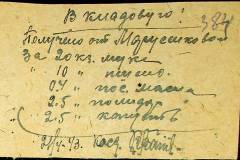 В кладовую!
387
Получено от Марусиковой
За 20 кг. муки
" 10 " пшено
" 0,4 " пос. масла
" 2.5 " помидор
" 2.5 " капусты